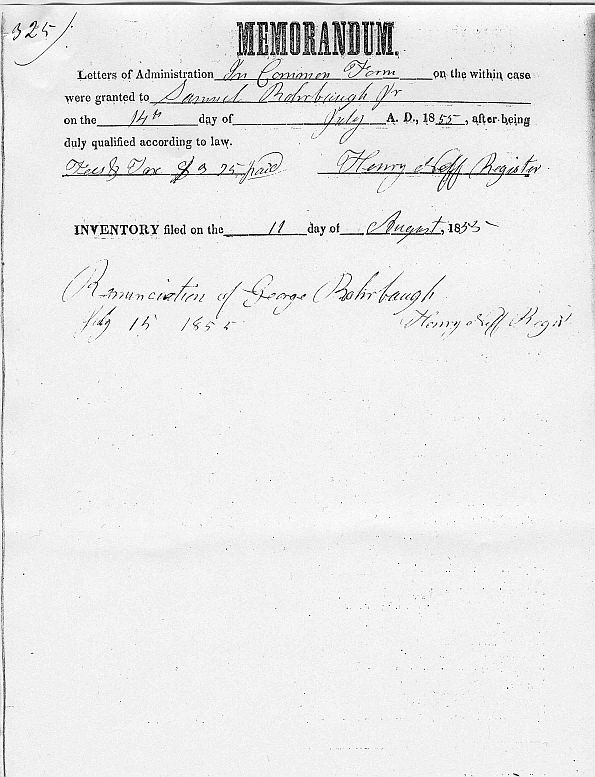 325)
MEMORANDUM.
Letters of Administration In Common Form on the within case
were granted to Samuel Rohrbaugh Jr
on the 14th day of July A. D., 1855, after being
duly qualified according to law.
Fees & Tax $3 75 paid Henry Neff Register
INVENTORY filed on the 11 day of August, 1855
Renunciation of George Rohrbaugh
15 1855 Henry Neff Regis